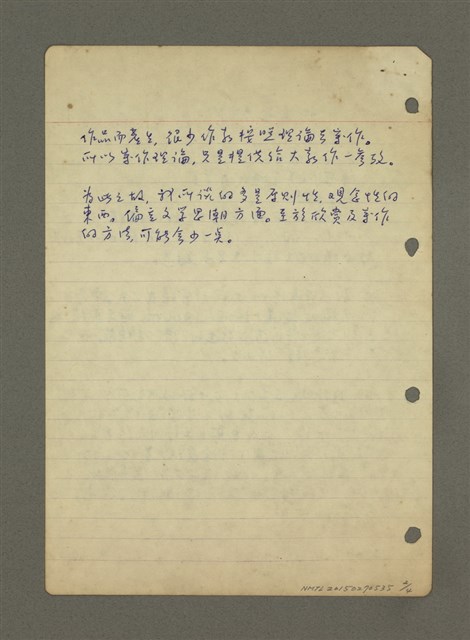 作品而產生，很少作家按照理論去寫作。
所以寫作理論，只是提供給大家作一參攷。
為此之故，我所談的多是原則性，觀念性的
東西。偏主文學思潮方面。至於欣賞及寫作
的方法，可能會少一点。
NMTL20150290535 2/4